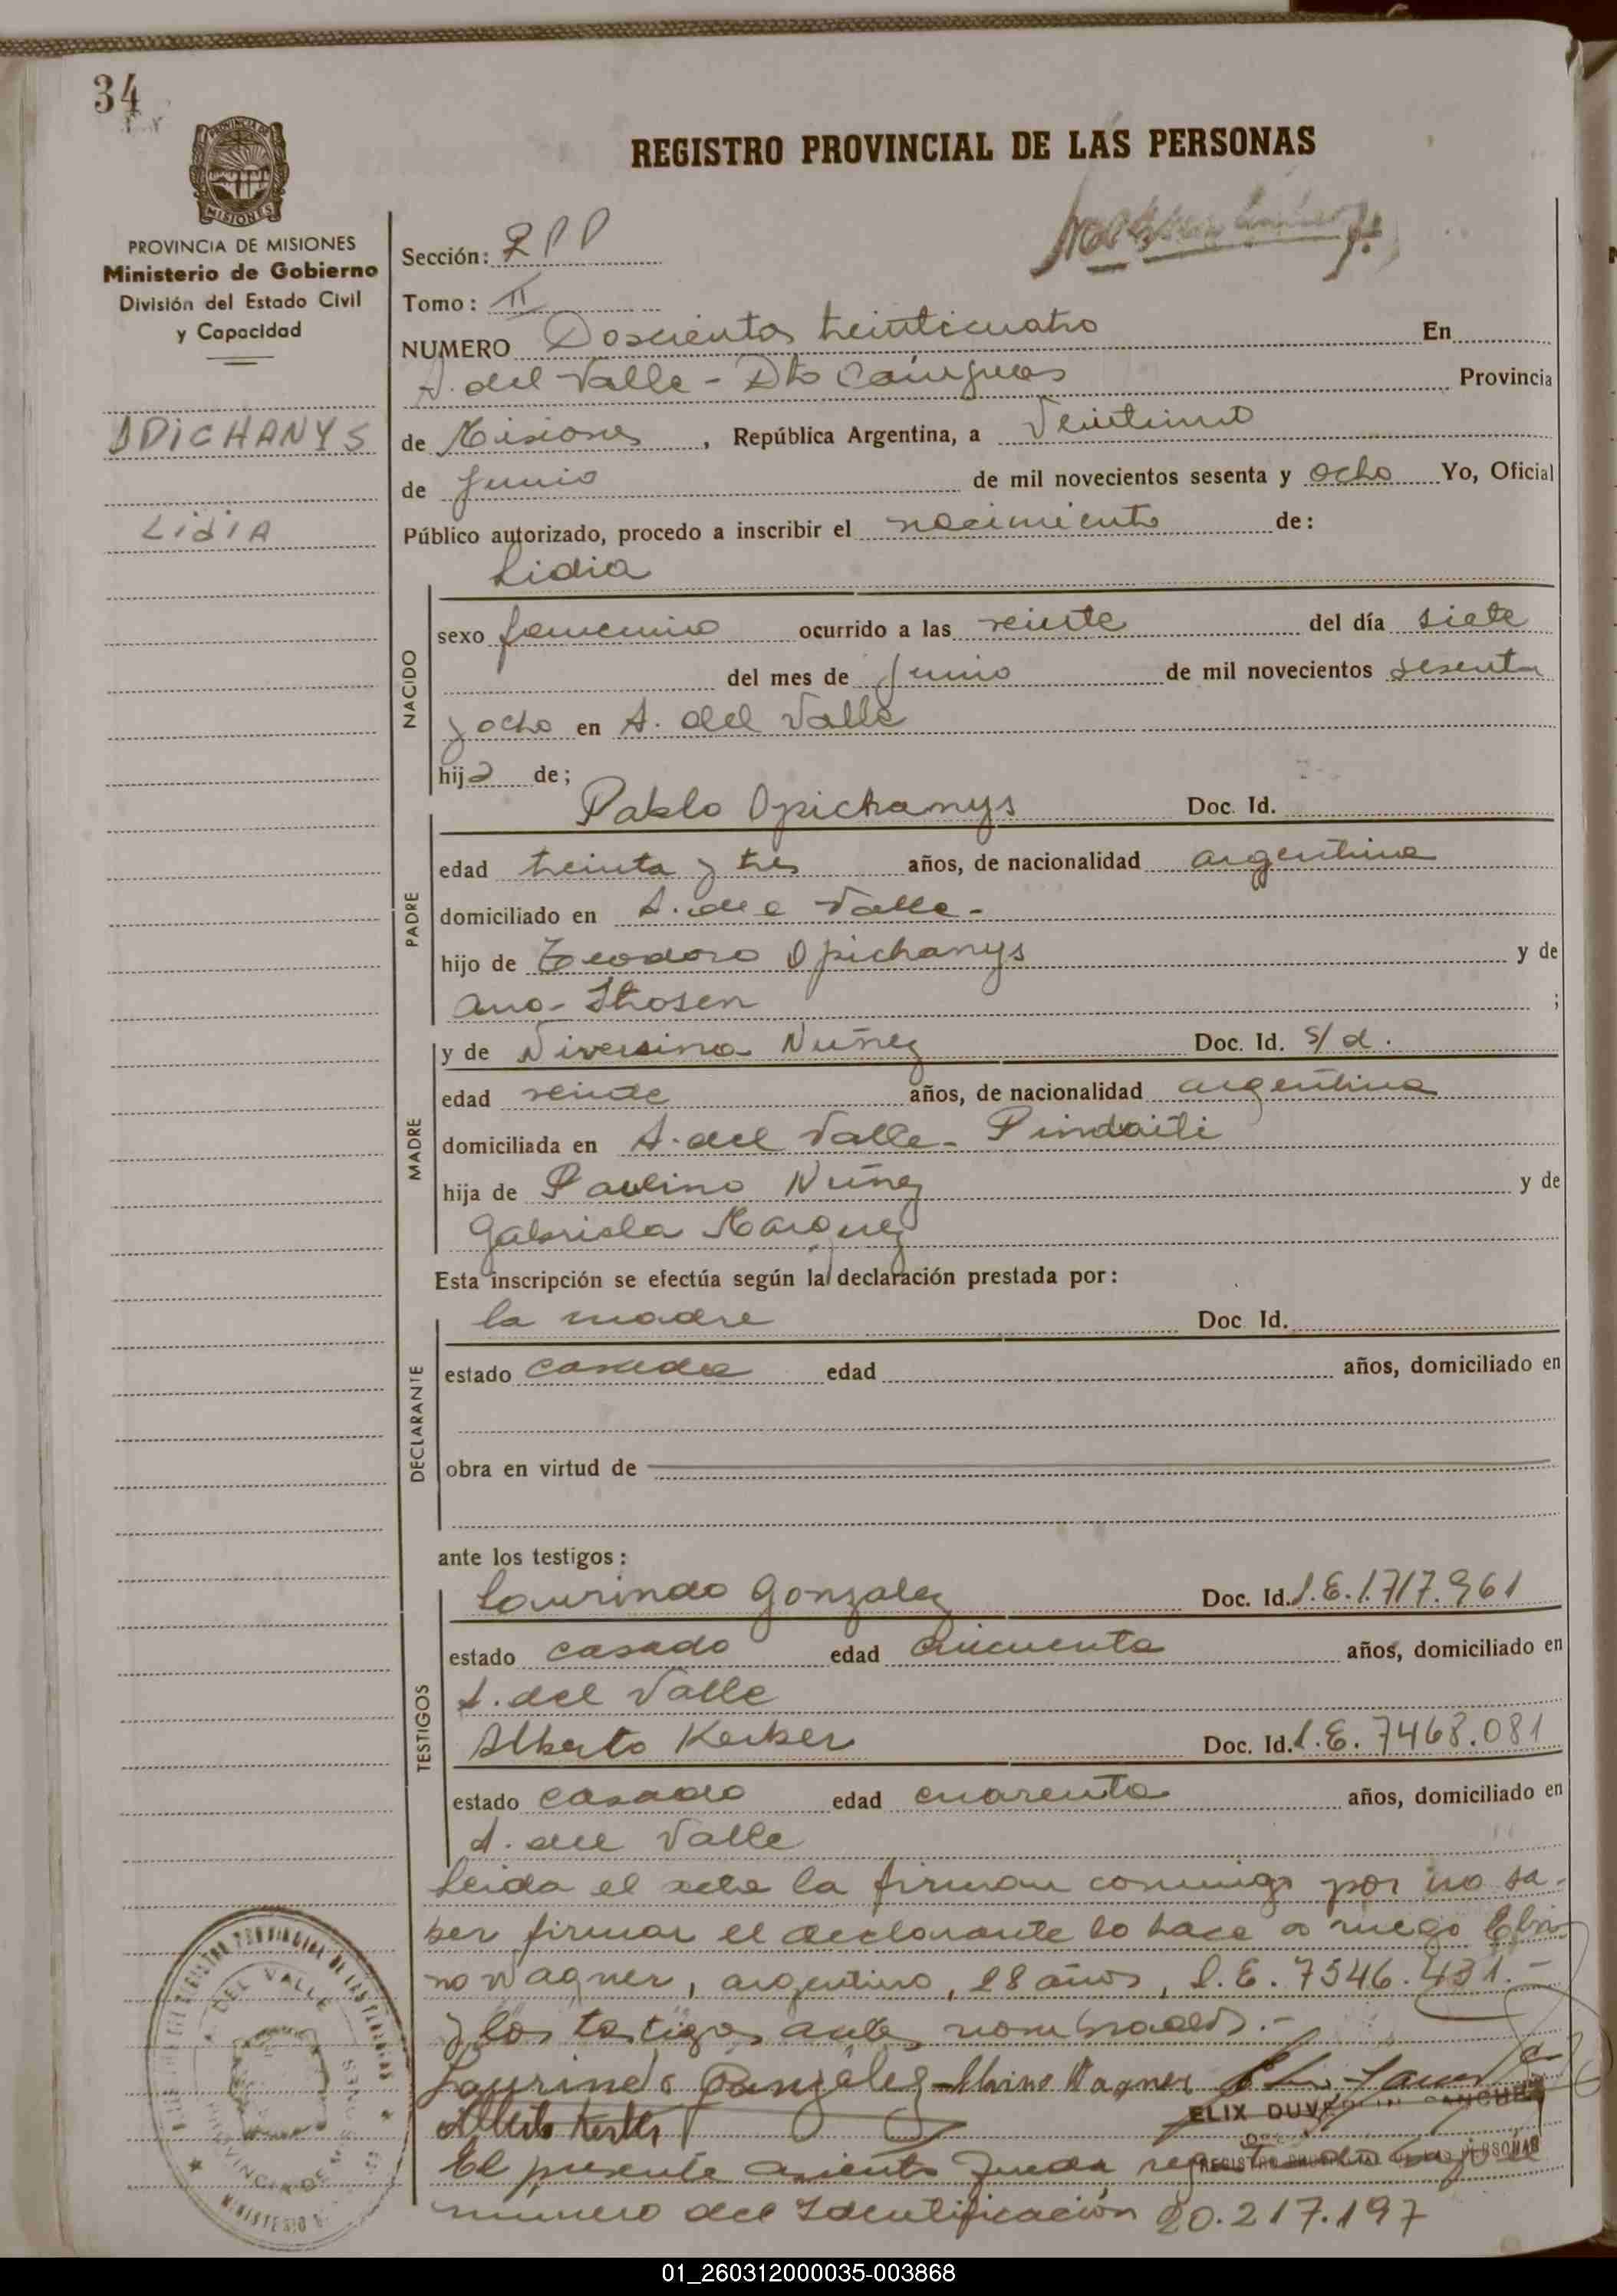 34
PROVINCIA DE MISIONES
REGISTRO PROVINCIAL DE LAS PERSONAS
PROVINCIA DE MISIONES
Ministerio de Gobierno
División del Estado Civil
y Capacidad
Sección:
Tomo: II
NUMERO Doscientos treinticuatro En
A. del Valle - Dto Cainguas Provincia
OPICHANYS
de Misiones, República Argentina, a Veintiuno
de Junio de mil novecientos sesenta y ocho Yo, Oficial
LidiA
Público autorizado, procedo a inscribir el nacimiento de:
Lidia
NACIDO
sexo femenino ocurrido a las veinte del día siete
del mes de Junio de mil novecientos sesenta
y ocho en A. del Valle
hija de;
PADRE
Pablo Opichanys Doc. Id.
edad treinta y tres años, de nacionalidad argentina
domiciliado en A. del Valle-
hijo de Teodoro Opichanys y de
Ana Thosen ;
MADRE
y de Niversina Nuñez Doc. Id. s/d.
edad veinte años, de nacionalidad argentina
domiciliada en A. del Valle- Pindaiti
hija de Paulino Nuñez y de
Gabriela Marquez
Esta inscripción se efectúa según la declaración prestada por:
DECLARANTE
la madre Doc Id.
estado casada edad años, domiciliado en
obra en virtud de
ante los testigos:
TESTIGOS
Laurindo Gonzalez Doc. Id. L.E.1.717.961
estado casado edad cincuenta años, domiciliado en
A. del Valle
Alberto Kerber Doc. Id. L.E. 7468.081
estado casado edad cuarenta años, domiciliado en
A. del Valle
Leida el acta la firman conmigo por no sa-
ber firmar el declarante lo hace a ruego Elvi
no Wagner, argentino, 28 años, L.E. 7546.431.-
y los testigos antes nombrados.-
Laurindo Gonzalez Elvino Wagner
ELIX
Alberto Kerber
REGISTRO PROVINCIAL DE LAS PERSONAS
El presente asiento queda registrado bajo el
número del Identificación 20.217.197
DEL VALLE
PROVINCIA DE MISIONES
MINISTERIO
01_260312000035-003868